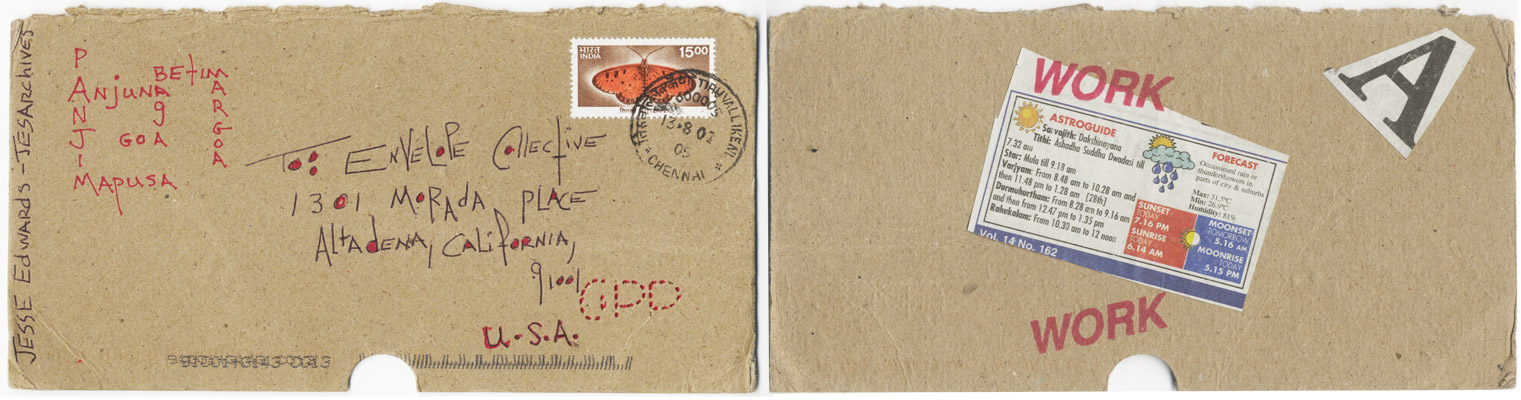 JESSE EDWARDS - JESARCHIVES
PANJIM
BETIM
ANJUNA
BAGA
MARGOA
GOA
MAPUSA
भारत
INDIA
1500
TIRUVALLIKENI
600005
CHENNAI
To: ENVELOPE COLLECTIVE
1301 MORADA PLACE
ALTADENA, CALIFORNIA,
91001
GPO
U.S.A.
WORK
A
ASTROGUIDE
Sarvajith: Dakshinayana
Tithi: Ashadha Suddha Dwadasi till
7.32 am
Star: Mula till 9.18 am
Varjyam: From 8.48 am to 10.28 am and
then 11.48 pm to 1.28 am [28th]
Durmuhurtham: From 8.28 am to 9.16 am
and then from 12.47 pm to 1.35 pm
Rahukalam: From 10.30 am to 12 noon
FORECAST
Occassional rain or
thundershowers in
parts of city & suburbs
Max: 31.5°C
Min: 26.9°C
Humidity: 81%
SUNSET
TODAY
7.16 PM
SUNRISE
TODAY
6.14 AM
MOONSET
TOMORROW
5.16 AM
MOONRISE
TODAY
5.15 PM
Vol. 14 No. 162
WORK